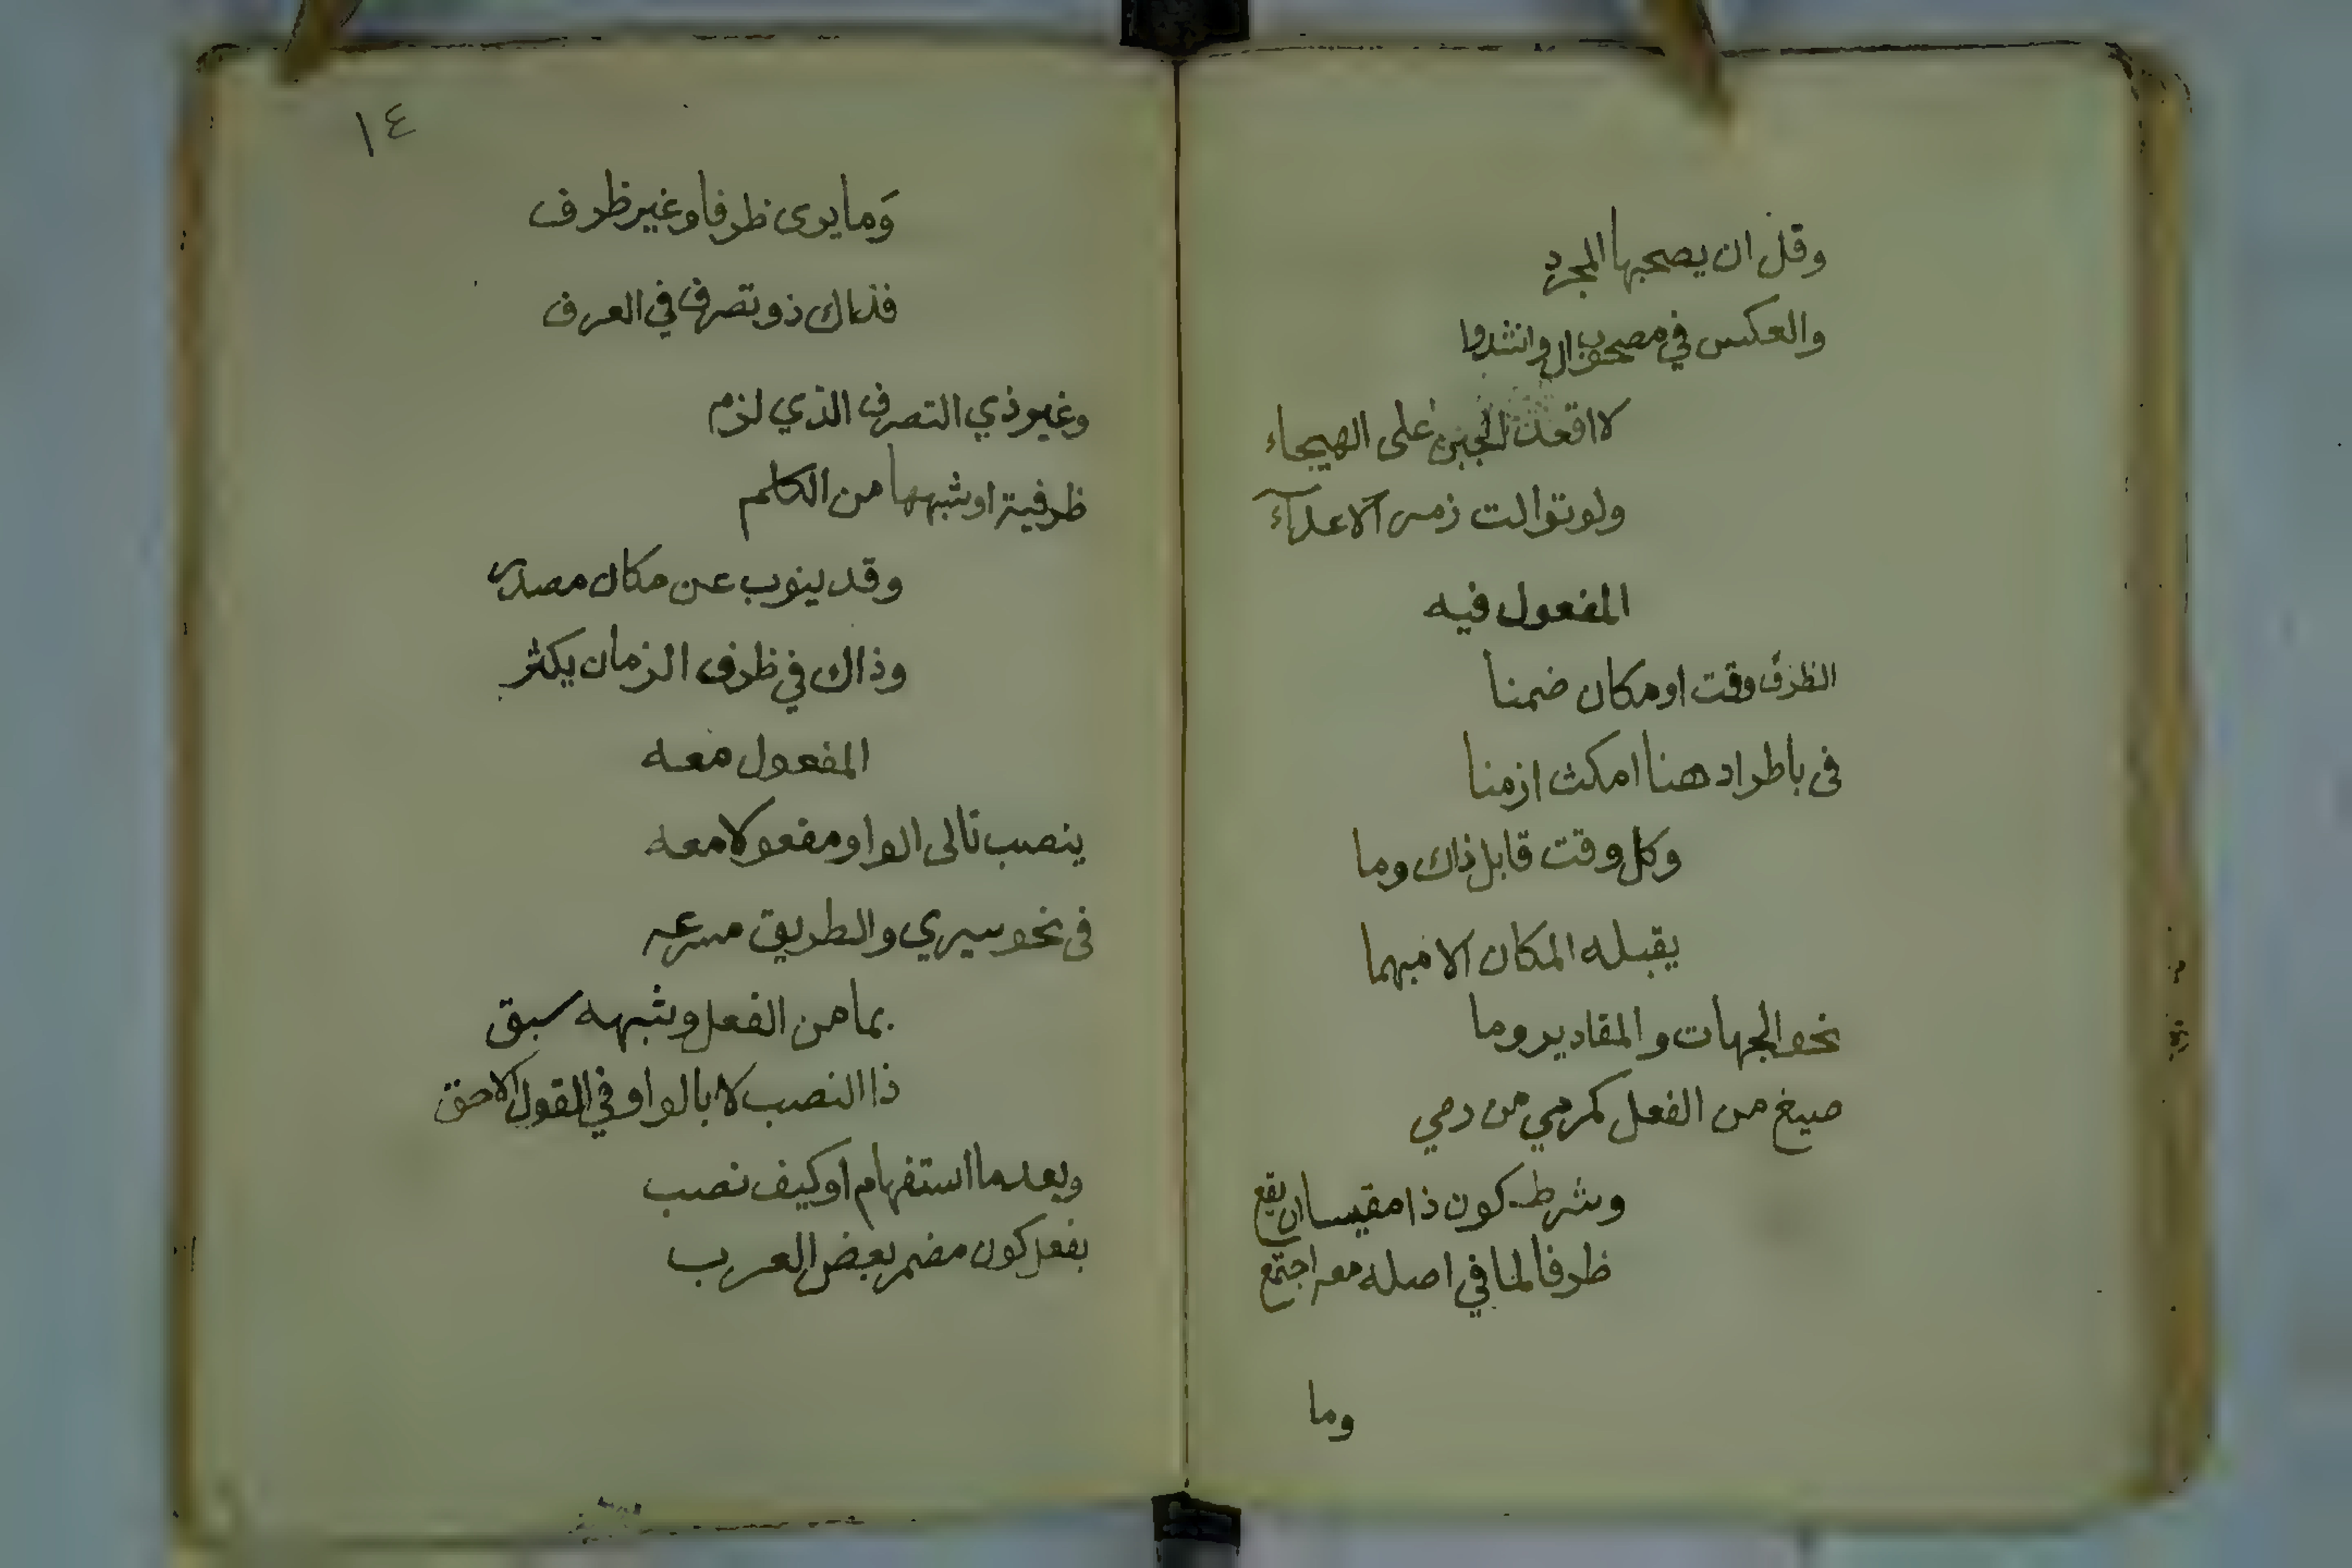 وقل ان يصحبها المجرد
والعكس في مصحوب ال وانشدوا
لا اقعد الجبن على الهيجاء
ولو توالت زمر الاعدآء
المفعول فيه
الظرف وقت او مكان ضمنا
فى باطراد هنا امكث ازمنا
وكل وقت قابل ذاك وما
يقبله المكان الا مبهما
نحو الجهات والمقادير وما
صيغ من الفعل كمرمي من رمي
وشرط كون ذا مقيسا ان يقع
ظرفا لما في اصله معه اجتمع
وما
١٤
وَما يرى ظرفا وغير ظرف
فذاك ذو تصرف في العرف
وغير ذي التصرف الذي لزم
ظرفية او شبهها من الكلم
وقد ينوب عن مكان مصدر
وذاك في ظرف الزمان يكثر
المفعول معه
ينصب تالى الواو مفعولا معه
فى نحو سيري والطريق مسرعه
بما من الفعل وشبهه سبق
ذا النصب لا بالواو في القول الاحق
وبعد ما استفهام او كيف نصب
بفعل كون مضمر بعض العرب